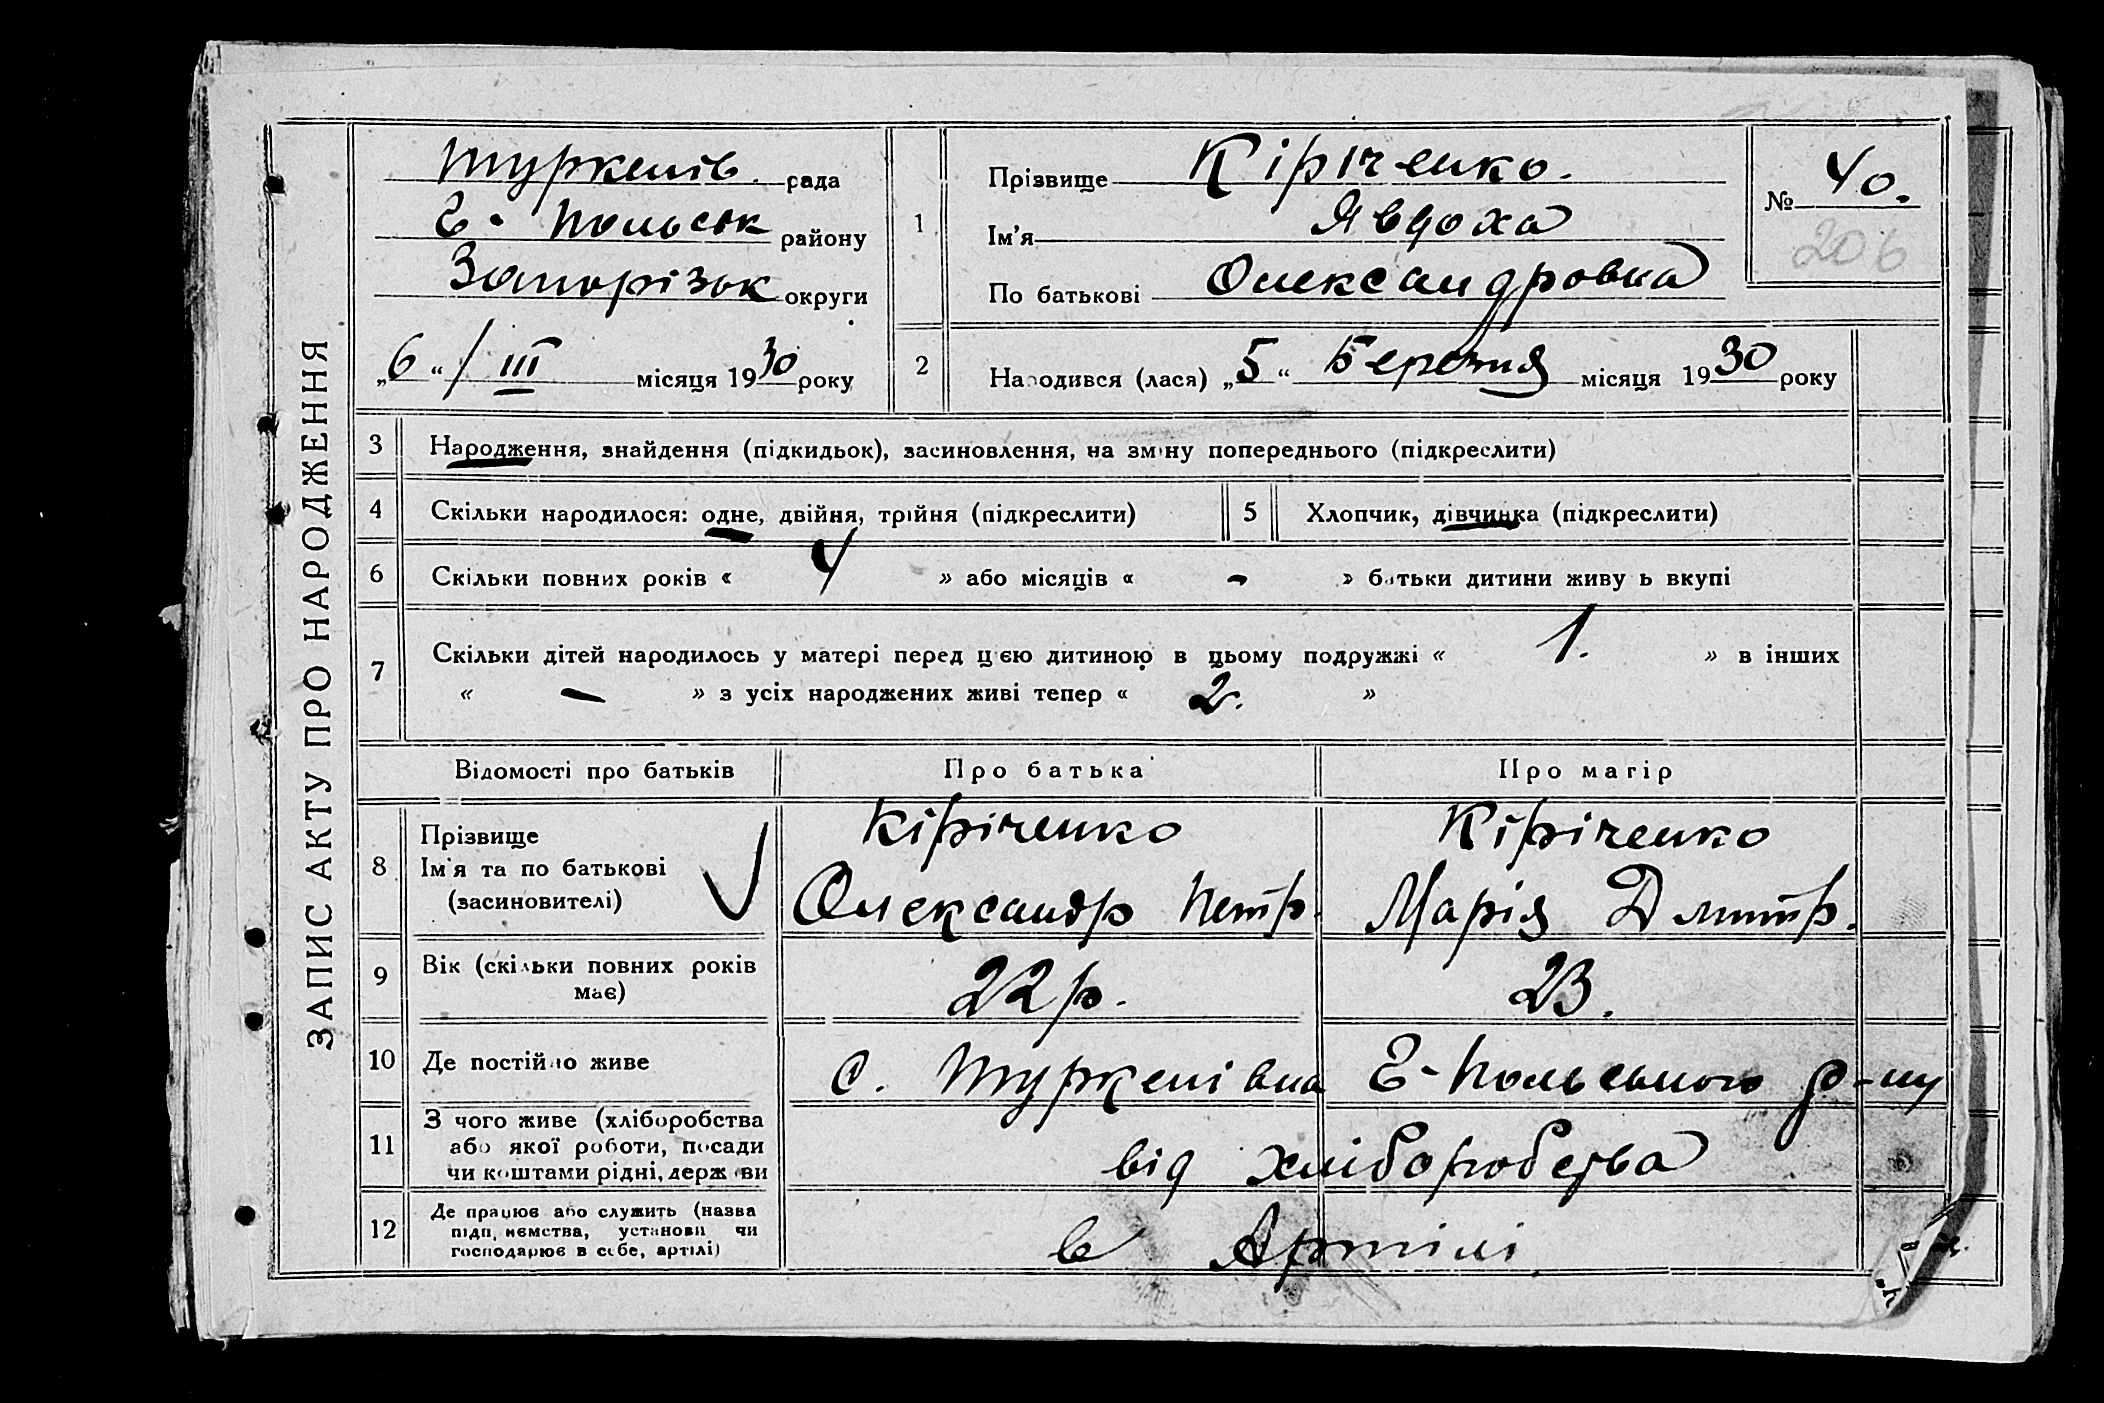 ЗАПИС АКТУ ПРО НАРОДЖЕННЯ
Туркенів. рада
Г-Польськ району
Запорізьк округи
„6“ / III місяця 1930 року
1
Прізвище Кіріченко.
Ім'я Явдоха
По батькові Олександровна
№ 40.
206
2
Народився (лася) „5“ Березня місяця 1930 року
3 Народження, знайдення (підкидьок), засиновлення, на зміну попереднього (підкреслити)
4 Скільки народилося: одне, двійня, трійня (підкреслити)
5 Хлопчик, дівчинка (підкреслити)
6 Скільки повних років « 4 » або місяців « - » батьки дитини живуть вкупі
7 Скільки дітей народилось у матері перед цією дитиною в цьому подружжі « 1. » в інших
« - » з усіх народжених живі тепер « 2. »
Відомості про батьків Про батька Про матір
8 Прізвище
Ім'я та по батькові
(засиновителі)
Кіріченко
Олександр Петр.
Кіріченко
Марія Дмитр.
9 Вік (скільки повних років
має)
22 р.
23.
10 Де постійно живе с. Туркенівка Г-Польського р-ну
11 З чого живе (хліборобства
або якої роботи, посади
чи коштами рідні, держави
від хліборобства
12 Де працює або служить (назва
підприємства, установи чи
господарює в себе, артілі)
в Артілі